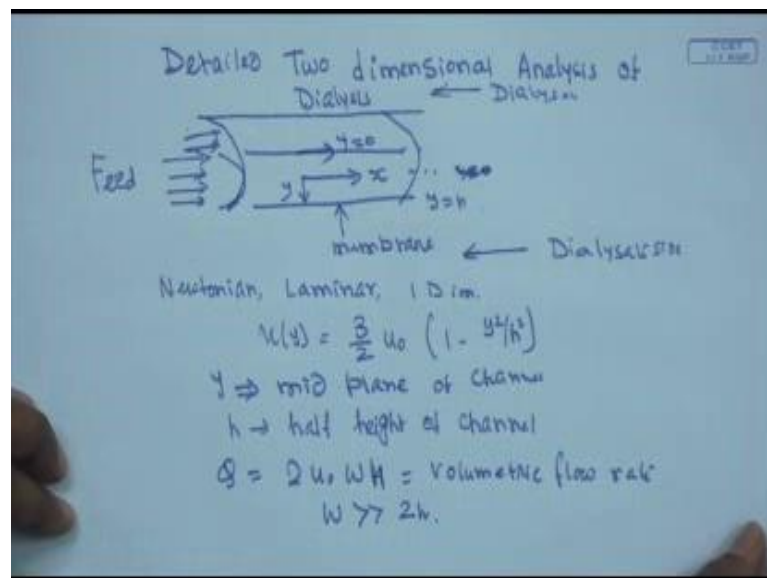 Detailed Two dimensional Analysis of
Dialysis ← Dialysate
Feed
y=0
y x
y=h
membrane ← Dialysate side
Newtonian, Laminar, 1 Dim.
u(y) = 3/2 u₀ (1 - y²/h²)
y ⇒ mid plane of Channel
h → half height of Channel
Q = 2 u₀ W H = Volumetric flow rate
W >> 2h.